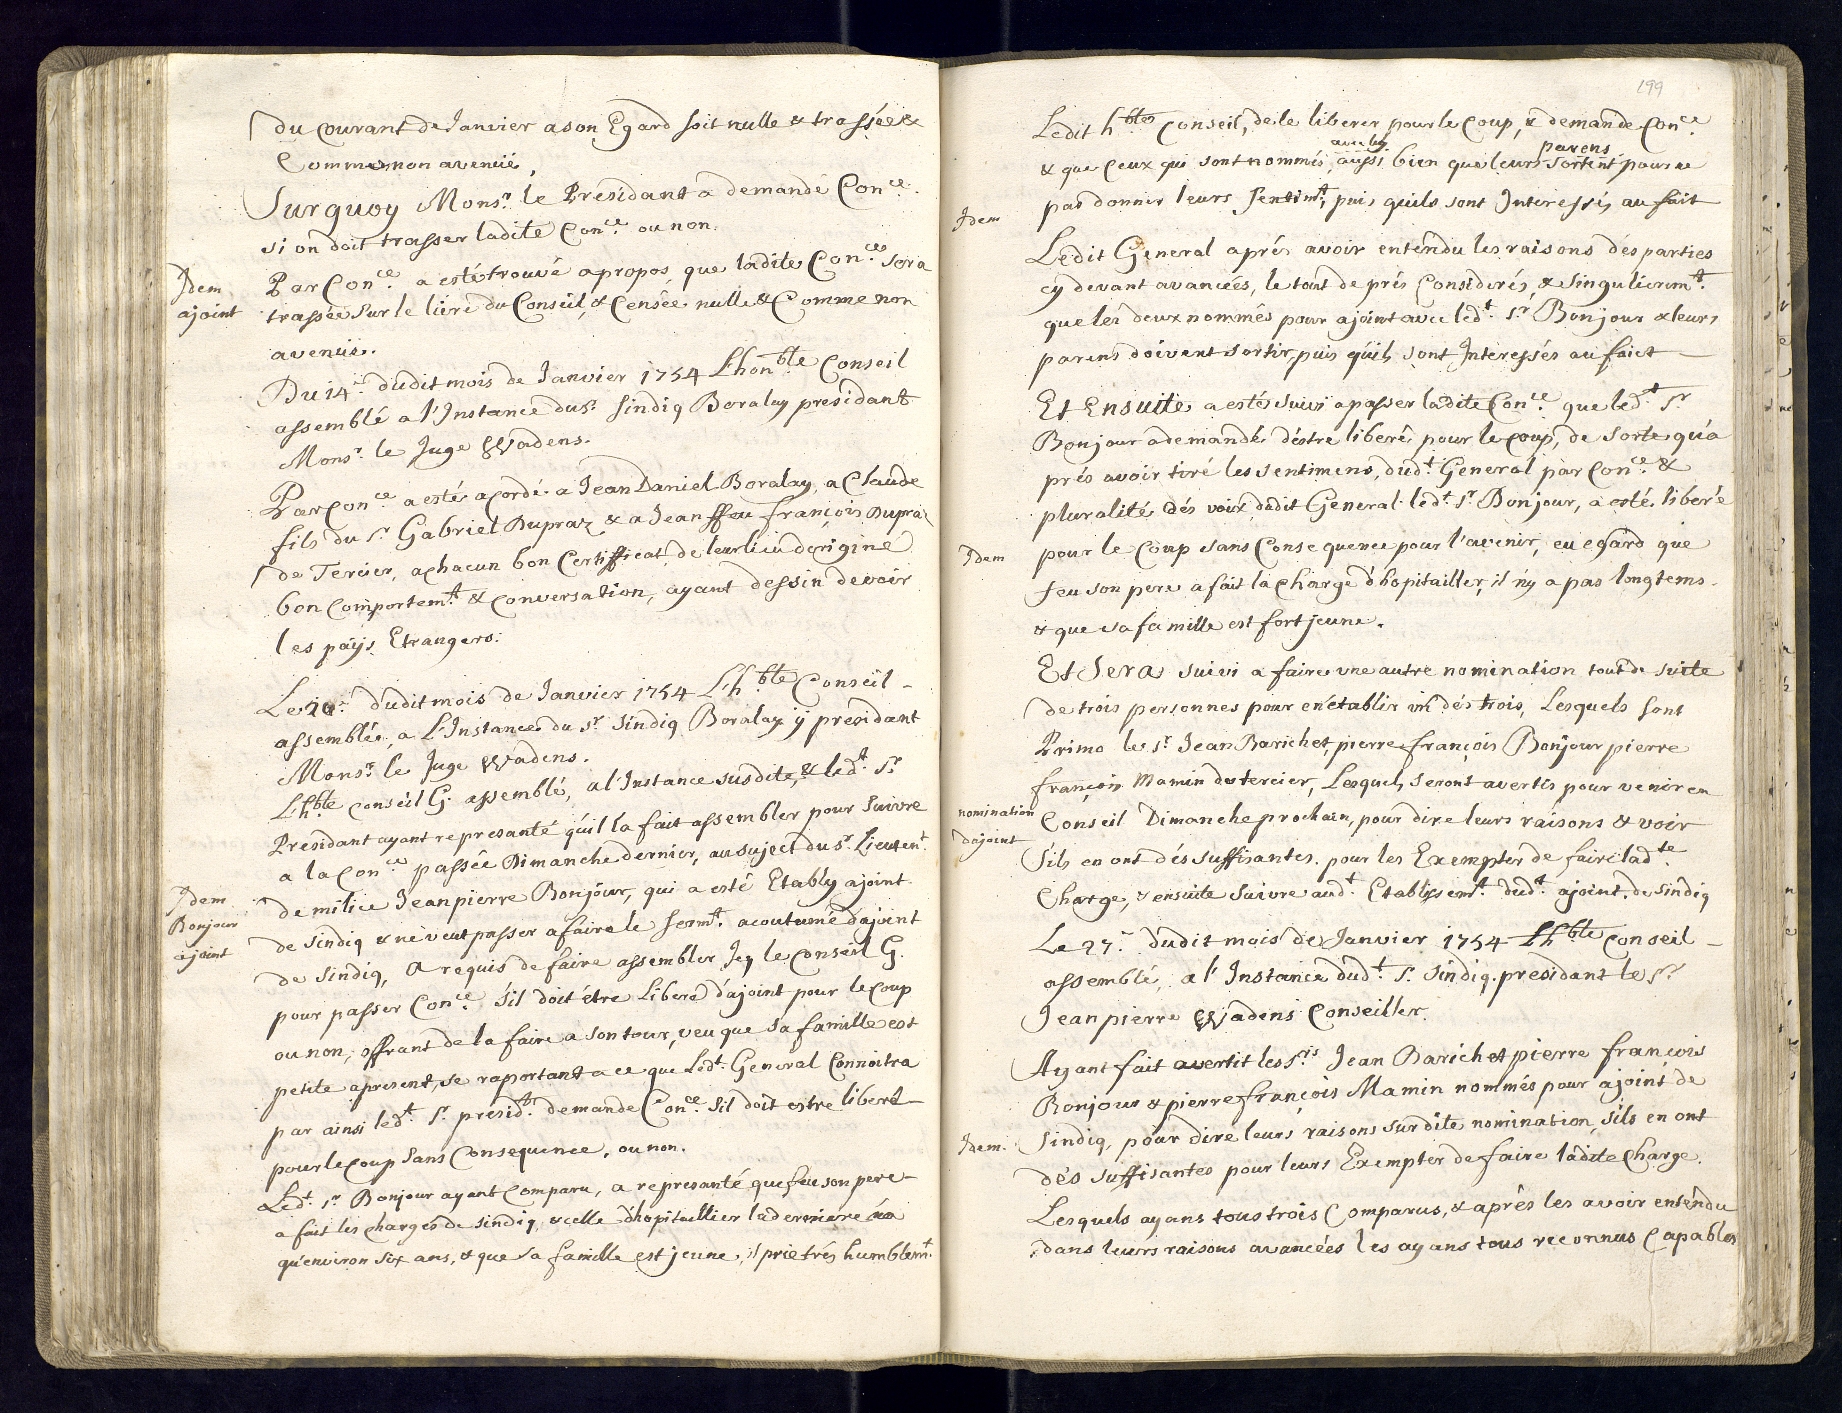 du Courant de Janvier a son Egard soit nulle & trassée &
Comme non avenüe,
Surquoy Monsr. le Présidant a demandé Conce.
si on doit trasser ladite Conce. ou non.
Idem
ajoint
Par Conce a esté trouvé apropos, que ladite Conce. sera
trassée sur le livre du Conseil, & Censée nulle & Comme non
avenüe.
Du 14e. dudit mois de Janvier 1754 Lhonble Conseil
assemblé a l'Instance du sr. Sindiq Boralay presidant
Monsr. le Juge Wadens.
Par Conce a esté acordé a Jean Daniel Boralay, a Claude
fils du sr. Gabriel Dupraz & a Jean ffeu françois Dupraz
de Tercier, a chacun bon Certifficat de leur lieu dorigine
bon Comportemt. & Conversation, ayant dessin de voir
les païjs Etrangers.
Le 20e. dudit mois de Janvier 1754 L'hble Conseil
assemblée, a L'Instance du sr. Sindiq Boralay ÿ presidant
Monsr. le Juge Wadens.
L'hble Conseil G. assemblé, a l'Instance susdite, & ledt. Sr.
Présidant ayant represanté quil la fait assembler pour suivre
a la Conce. passée Dimanche dernier, au suject du sr. Lieutent.
Idem
Bonjour
ajoint
de milice Jean pierre Bonjour, qui a esté Etably ajoint
de Sindiq & ne veut passer a faire le sermt. acoutumé dajoint
de Sindiq, a requis de faire assembler Jcy le Conseil G.
pour passer Conce. s'il doit étre Liberé dajoint pour le Coup
ou non, offrant de la faire a son tour, veu que sa famille est
petite apresent, se raportant a ce que Ledt. General Connoitra
par ainsi ledt. Sr. présidt. demande Conce. Sil doit estre liberé
pour le Coup sans Consequence, ou non.
Ledt. Sr. Bonjour ayant Comparu, a represanté que feu son pere
a fait les charges de sindiq, & celle d'hopitallier la derniere
qu'environ six ans, & que sa famille est jeune, il prie trés humblemt.
199
Ledit hble Conseil, de le liberer pour le Coup, & demande Conce.
avec luy
parens
& que Ceux qui sont nommés, aussi bien que leurs sortent pour ne
pas donner leurs sentimt, puis quils sont Interessés au fait
Idem
Ledit General aprés avoir entendu les raisons dés parties
cy devant avancées, le tout de prés Considerés & singulierimt.
que les deux nommés pour ajoint avec ledt. Sr. Bonjour & leurs
parens doivent sortir, puis quils sont Interessés au faict
Et Ensuite a estés suivi a passer ladite Conce. que ledt. Sr
Bonjour a demandé déstre liberé pour le Coup, de sorte qu'a
prés avoir tiré les sentimens, dudt. General par Conce. &
pluralité dés voix dudit General ledt. Sr. Bonjour, a esté liberé
Idem
pour le Coup sans Consequence pour l'avenir, eu egard que
feu son pere a fait la Charge d'hopitailler, il n'y a pas longtems
& que sa famille est fort jeune.
Et Sera suivi a faire vne autre nomination tout de suite
de trois personnes pour en établir vn dés trois, Lesquels sont
Primo le sr. Jean Barichet pierre françois Bonjour pierre
françois Mamin de tercier, Lesquels seront avertis pour venir en
nomination
dajoint
Conseil Dimanche prochain, pour dire leurs raisons & voir
S'ils en ont dés suffisantes, pour les Exempter de faire ladte.
Charge, & ensuite suivre audt. Etablissemt. dudt. ajoint, de Sindiq
Le 27e. dudit mois de Janvier 1754 Lhble Conseil
assemblé, a l'Instance dudt. Sr. Sindiq. presidant le Sr
Jean pierre Wadens Conseiller.
Ayant fait avertit les Srs Jean Barichet pierre françois
Bonjour & pierre françois Mamin nommés pour ajoint de
Idem.
Sindiq, pour dire leurs raisons surdite nomination, s'ils en ont
dés suffisantes pour leurs Exempter de faire ladite Charge.
Lesquels ayans tous trois Comparus, & aprés les avoir entendu
dans leurs raisons avancées les ayans tous reconnus Capables